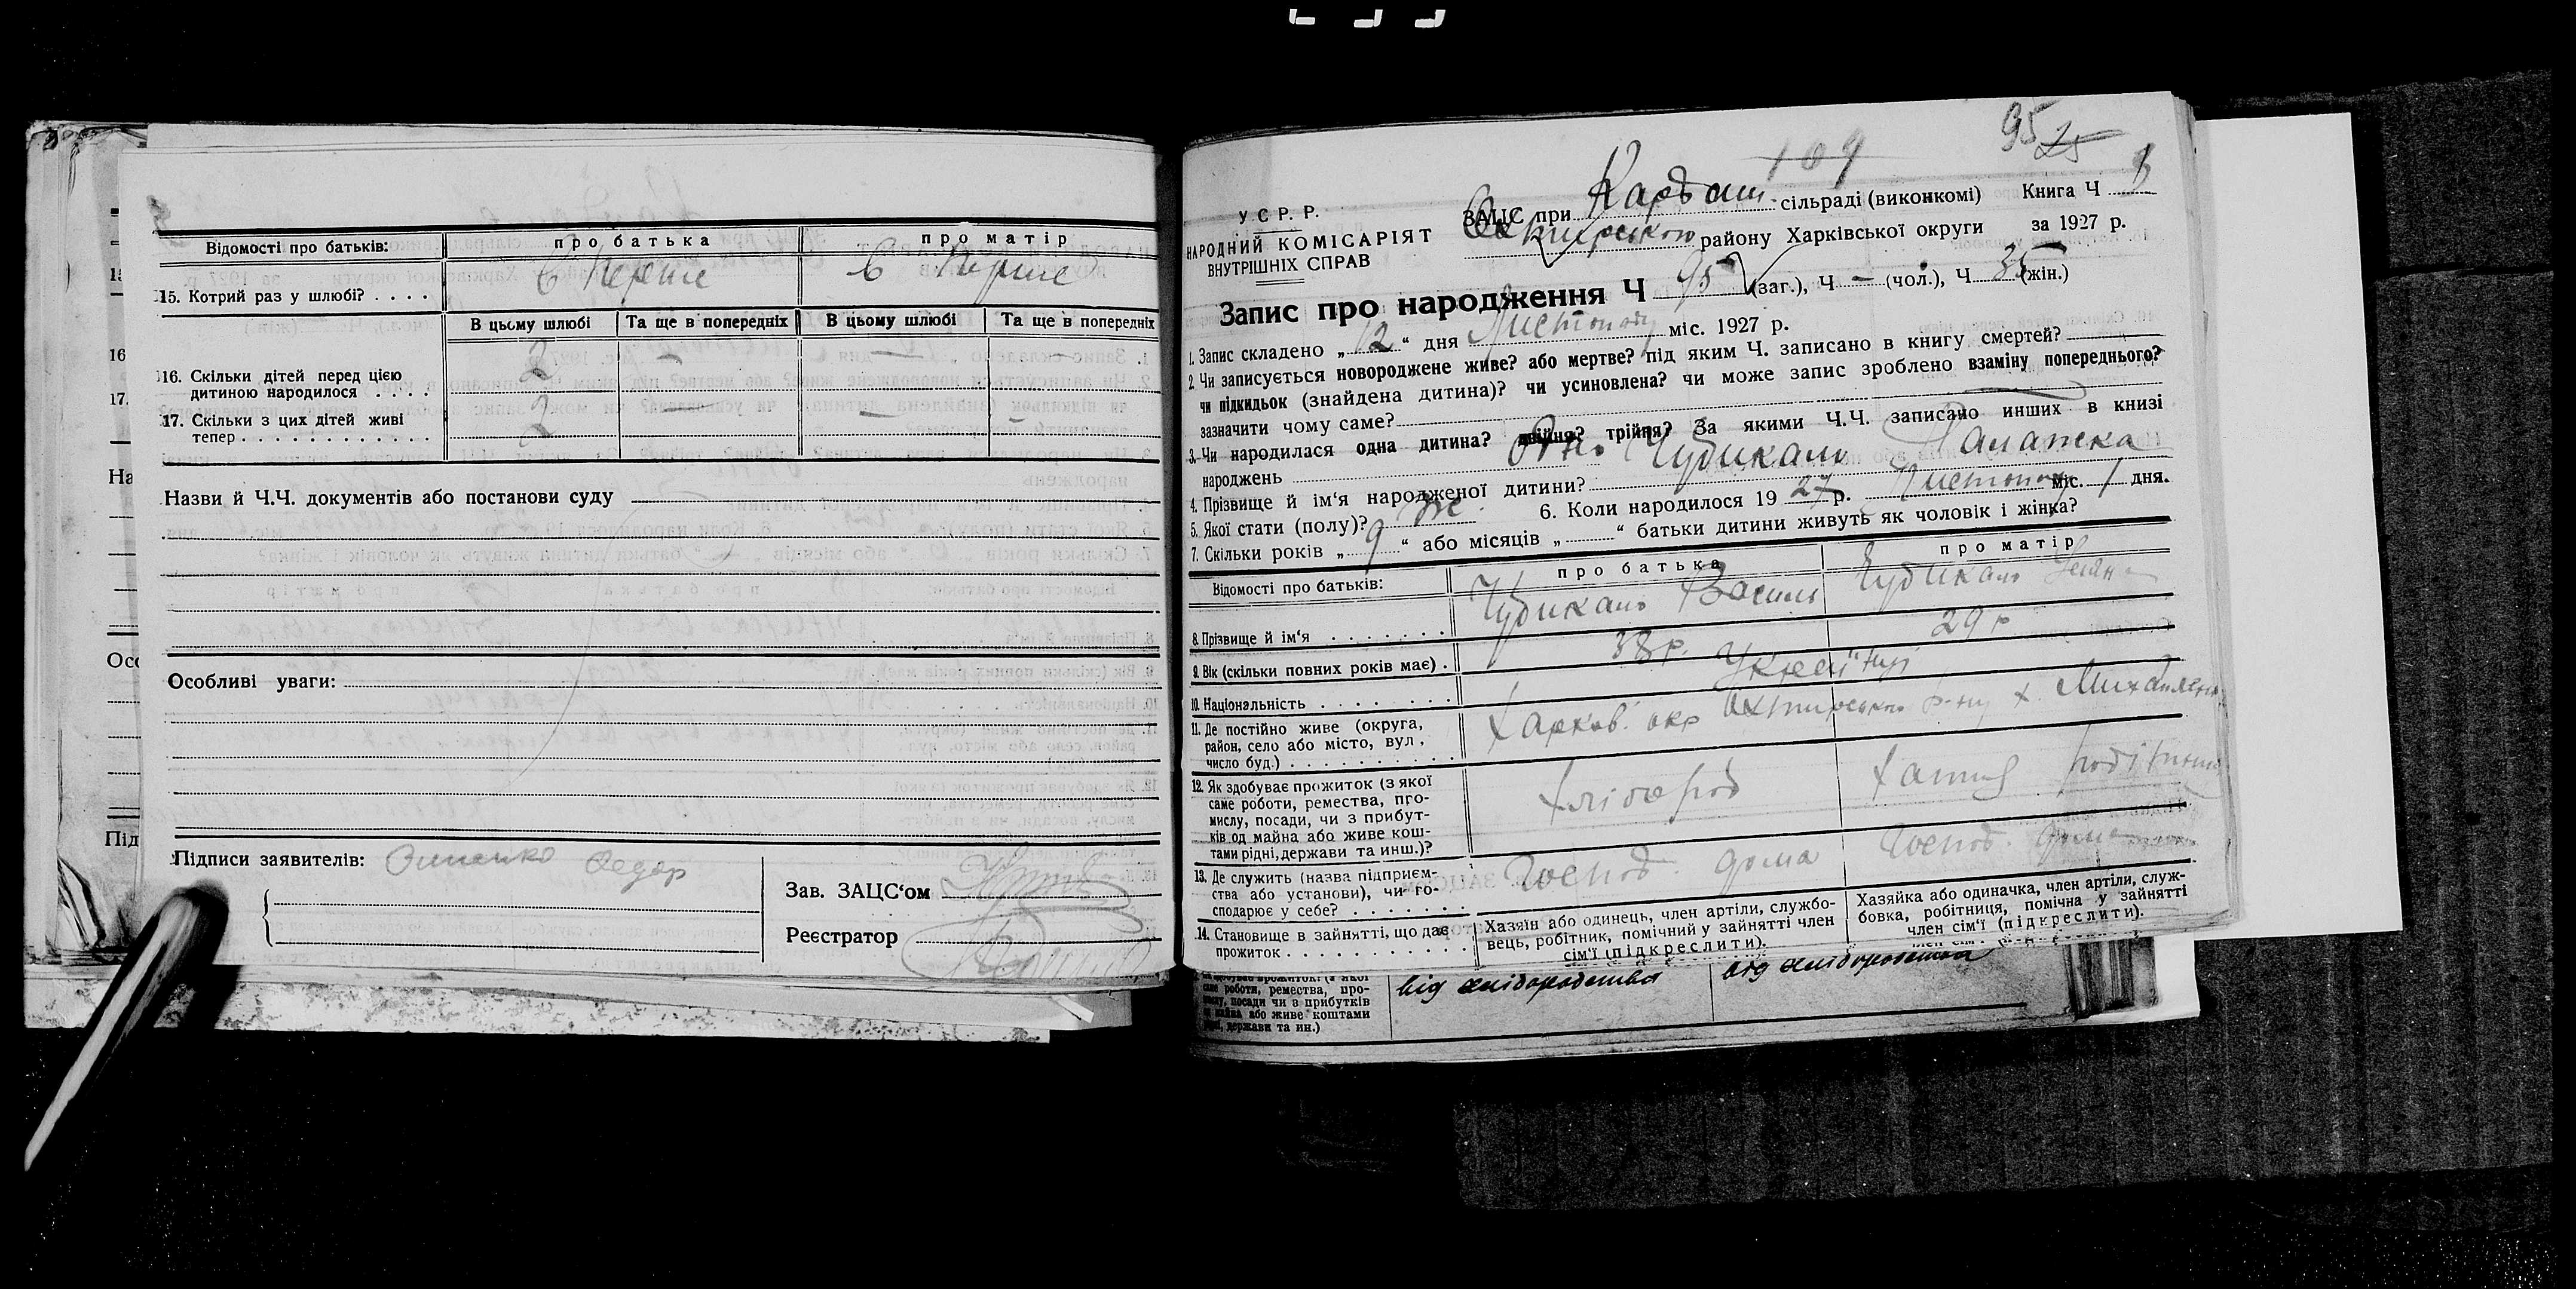 Відомості про батьків: про батька про матір
15. Котрий раз у шлюбі? . . . . в перше в перше
В цьому шлюбі Та ще в попередніх В цьому шлюбі Та ще в попередніх
16. Скільки дітей перед цією
дитиною народилося . . . . 2 — — —
17. Скільки з цих дітей живі
тепер . . . . . . . . . . . . 2 — — —
Назви й Ч.Ч. документів або постанови суду
Особливі уваги:
Підписи заявителів: Федор
Зав. ЗАЦС‘ом
Реєстратор
95 25
109
У С Р. Р.
НАРОДНИЙ КОМІСАРІЯТ
ВНУТРІШНІХ СПРАВ
ЗАЦС при Кардаш. сільраді (виконкомі) Книга Ч
Охтирського району Харківської округи за 1927 р.
Запис про народження Ч 95 (заг.), Ч — (чол.), Ч 35 (жін.)
1. Запис складено „ 12 “ дня Листопаду міс. 1927 р.
2. Чи записується новороджене живе? або мертве? під яким Ч. записано в книгу смертей?
чи підкидьок (знайдена дитина)? чи усиновлена? чи може запис зроблено взаміну попереднього?
зазначити чому саме?
3. Чи народилася одна дитина? двійня? трійня? За якими Ч.Ч. записано инших в книзі
народжень Одно
4. Прізвище й ім‘я народженої дитини? Чубикало
5. Якої стати (полу)? же. 6. Коли народилося 19 27 р. Листопад міс. 1 дня.
7. Скільки років „ 9 “ або місяців „ “ батьки дитини живуть як чоловік і жінка?
Відомості про батьків: про батька про матір
8. Прізвище й ім‘я . . . . . . . Чубикало Василь Чубикало
9. Вік (скільки повних років має) . 38 р. 29 р
10. Національність . . . . . . . . Українці
11. Де постійно живе (округа,
район, село або місто, вул.,
число буд.) . . . . . . . . . . . Харков. окр Охтирського р-ну х.
12. Як здобуває прожиток (з якої
саме роботи, ремества, про-
мислу, посади, чи з прибут-
ків од майна або живе кош-
тами рідні, держави та инш.)? хлібороб хатня
13. Де служить (назва підприєм-
ства або установи), чи го-
сподарює у себе? . . . . . . . Господ. дома Господ. дома
14. Становище в зайнятті, що дає
прожиток . . . . . . . . . . .
Хазяїн або одинець, член артіли, службо-
вець, робітник, помічний у зайнятті член
сім‘ї (підкреслити).
Хазяйка або одиначка, член артіли, служ-
бовка, робітниця, помічна у зайнятті
член сім‘ї (підкреслити).
саме роботи, ремества, про-
мислу, посади чи з прибутків
від майна або живе коштами
рідні, держави та ин.)
від хліборобства від хліборобства